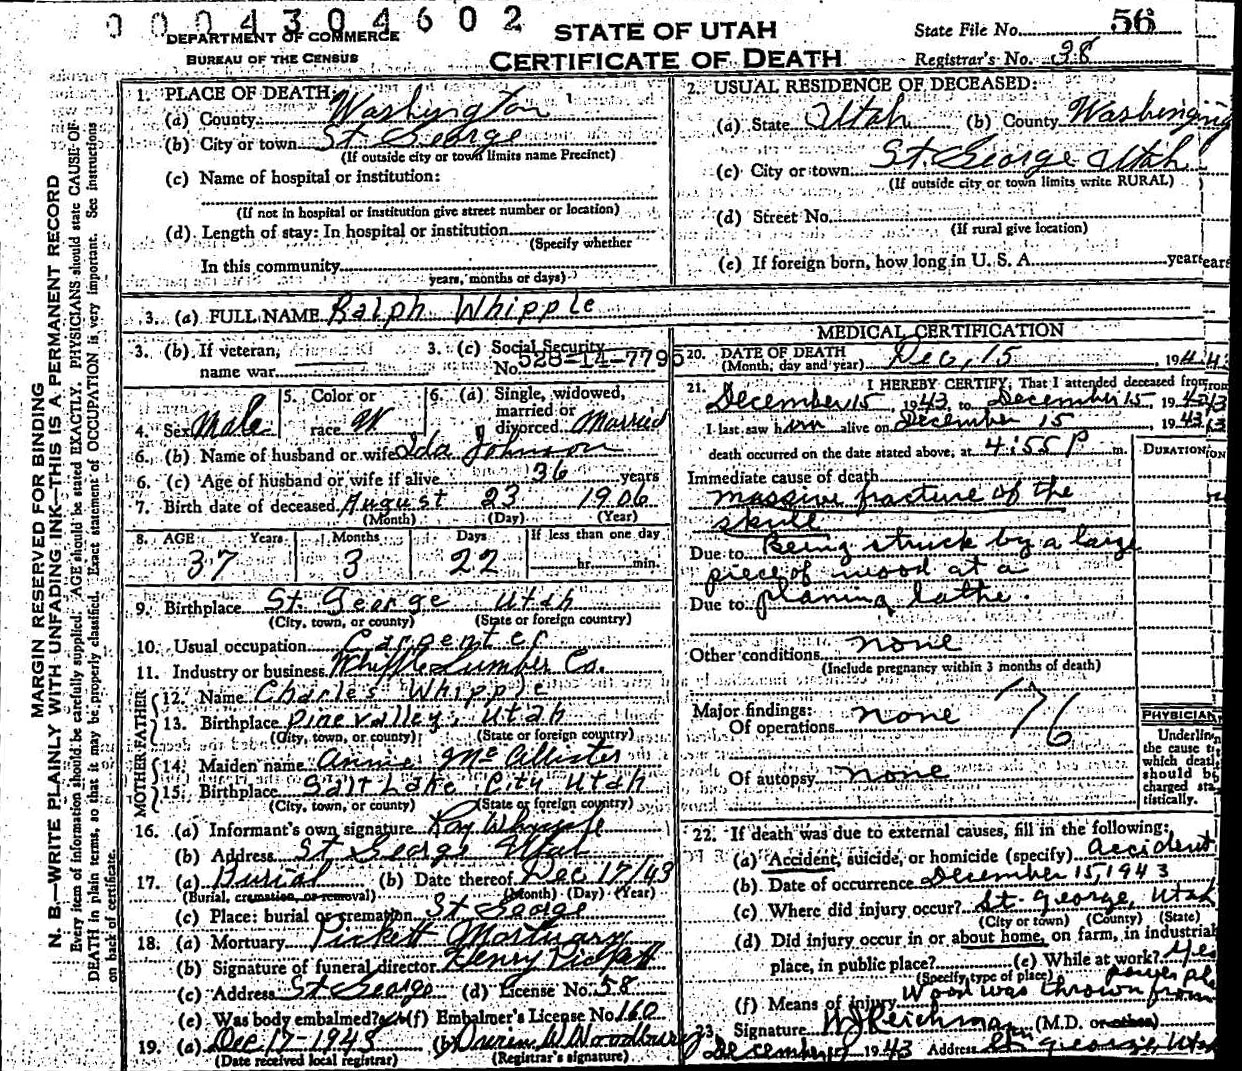 0004304602
DEPARTMENT OF COMMERCE
BUREAU OF THE CENSUS
STATE OF UTAH
CERTIFICATE OF DEATH
State File No. 56
Registrar's No. 38
MARGIN RESERVED FOR BINDING
N. B.—WRITE PLAINLY WITH UNFADING INK—THIS IS A PERMANENT RECORD
Every item of information should be carefully supplied. AGE should be stated EXACTLY. PHYSICIANS should state CAUSE OF
DEATH in plain terms, so that it may be properly classified. Exact statement of OCCUPATION is very important. See instructions
on back of certificate.
1. PLACE OF DEATH:
(a) County Washington
(b) City or town St George
(If outside city or town limits name Precinct)
(c) Name of hospital or institution:
(If not in hospital or institution give street number or location)
(d) Length of stay: In hospital or institution
(Specify whether
In this community
years, months or days)
2. USUAL RESIDENCE OF DECEASED:
(a) State Utah (b) County
(c) City or town St. George Utah
(If outside city or town limits write RURAL)
(d) Street No.
(If rural give location)
(e) If foreign born, how long in U. S. A. years
3. (a) FULL NAME Ralph Whipple
3. (b) If veteran, name war
3. (c) Social Security No. 528-14-7795
4. Sex Male
5. Color or race W
6. (a) Single, widowed, married or divorced Married
6. (b) Name of husband or wife Ida Johnson
6. (c) Age of husband or wife if alive 36 years
7. Birth date of deceased August 23 1906
(Month) (Day) (Year)
8. AGE Years Months Days If less than one day
37 3 22 hr. min.
9. Birthplace St. George Utah
(City, town, or county) (State or foreign country)
10. Usual occupation Carpenter
11. Industry or business Whipple Lumber Co.
FATHER
12. Name Charles Whipple
13. Birthplace Pine Valley, Utah
(City, town, or county) (State or foreign country)
MOTHER
14. Maiden name Annie McAllister
15. Birthplace Salt Lake City Utah
(City, town, or county) (State or foreign country)
16. (a) Informant's own signature Whipple
(b) Address St George Utah
17. (a) Burial (b) Date thereof Dec 17/43
(Burial, cremation, or removal) (Month) (Day) (Year)
(c) Place: burial or cremation St George
18. (a) Mortuary Pickett Mortuary
(b) Signature of funeral director Henry Pickett
(c) Address St George (d) License No. 58
(e) Was body embalmed? (f) Embalmer's License No. 160
19. (a) Dec 17-1943 (b) W Woodbury
(Date received local registrar) (Registrar's signature)
MEDICAL CERTIFICATION
20. DATE OF DEATH Dec, 15, 194
(Month, day and year)
21. I HEREBY CERTIFY, That I attended deceased from
December 15, 1943 to December 15, 1943
I last saw him alive on December 15, 1943
death occurred on the date stated above, at 4:55 P m.
DURATION
Immediate cause of death
massive fracture of the
skull
Due to Being struck by a large
piece of wood at a
Due to planing lathe.
Other conditions none
(Include pregnancy within 3 months of death)
Major findings:
Of operations none 76
Of autopsy none
PHYSICIAN
Underline
the cause to
which death
should be
charged sta-
tistically.
22. If death was due to external causes, fill in the following:
(a) Accident, suicide, or homicide (specify) accident
(b) Date of occurrence December 15, 1943
(c) Where did injury occur? St. George, Utah
(City or town) (County) (State)
(d) Did injury occur in or about home, on farm, in industrial
place, in public place? (e) While at work? Yes
(Specify type of place)
(f) Means of injury Wood was thrown from
23. Signature (M.D. or other)
December 1943 Address St. George, Utah